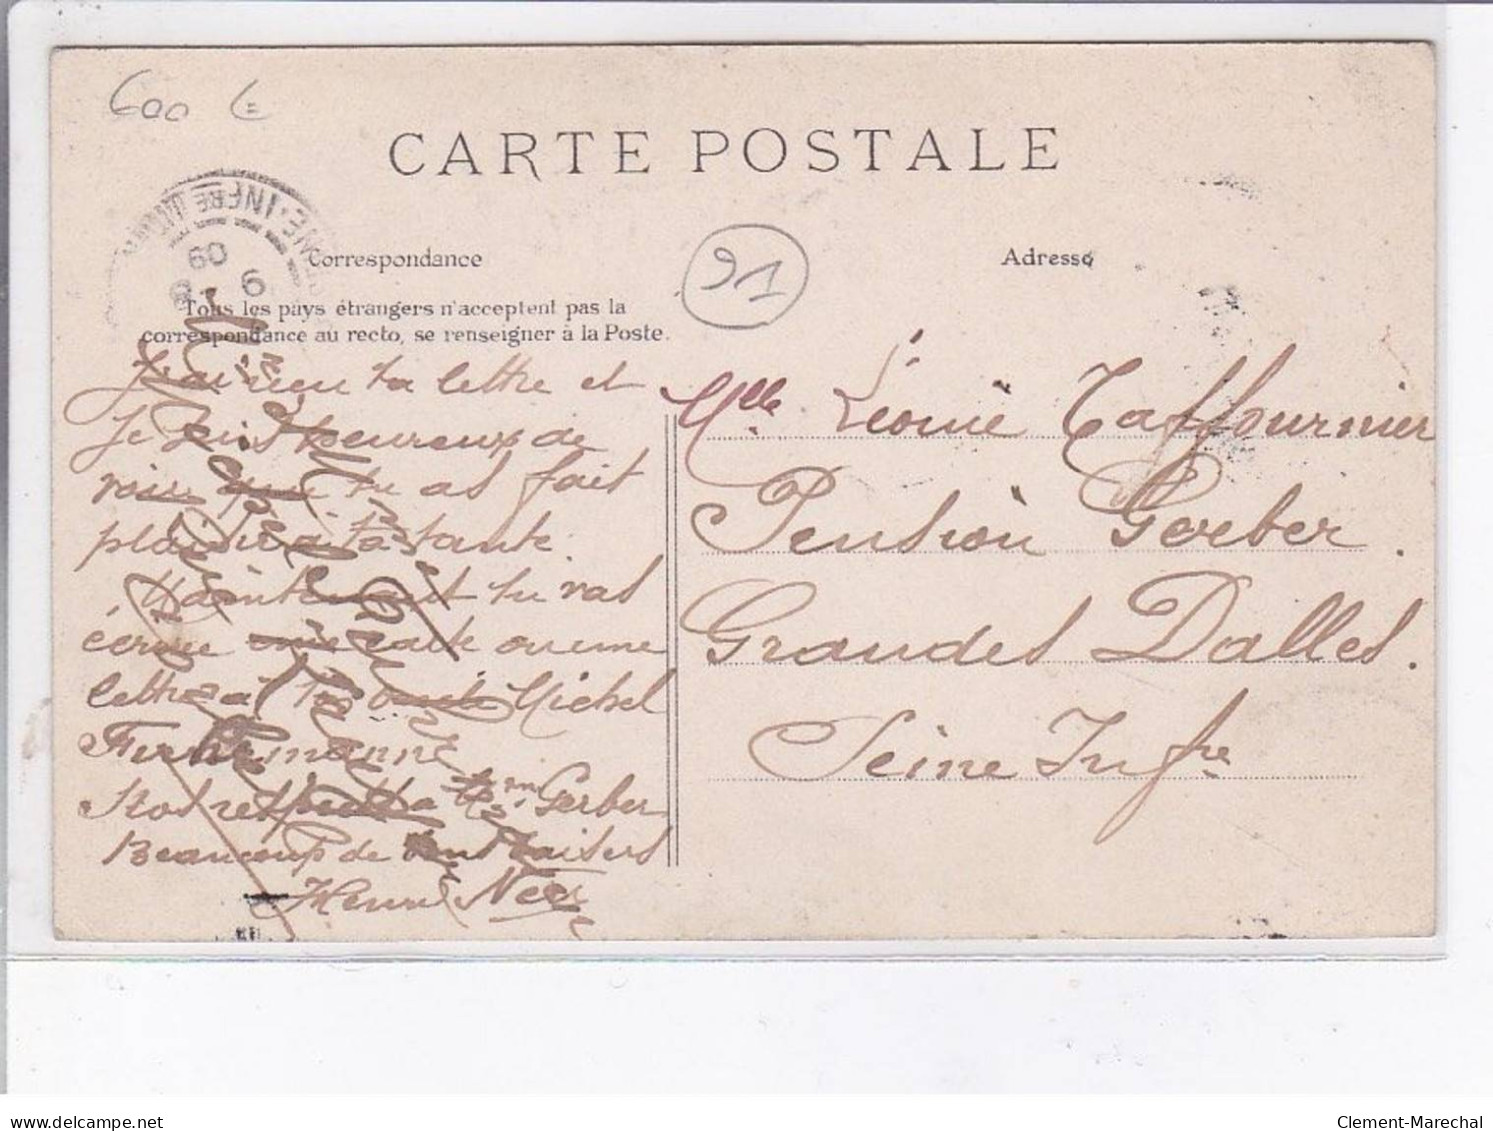 600 €
CARTE POSTALE
INFRE
09
6
Correspondance
Tous les pays étrangers n'acceptent pas la
correspondance au recto, se renseigner à la Poste.
91
Adresse
J'ai reçu ta lettre et
Je suis heureux de
voir que tu as fait
plaisir à ta tante.
Maintenant tu vas
écrire une carte ou une
lettre à Michel
Fuhrmann
Nos respects à Mme Gerber
Beaucoup de bons baisers
Henri
Mlle Léonie Taffournier
Pension Gerber.
Grandes Dalles.
Seine Infre
delcampe.net
Clement-Marechal